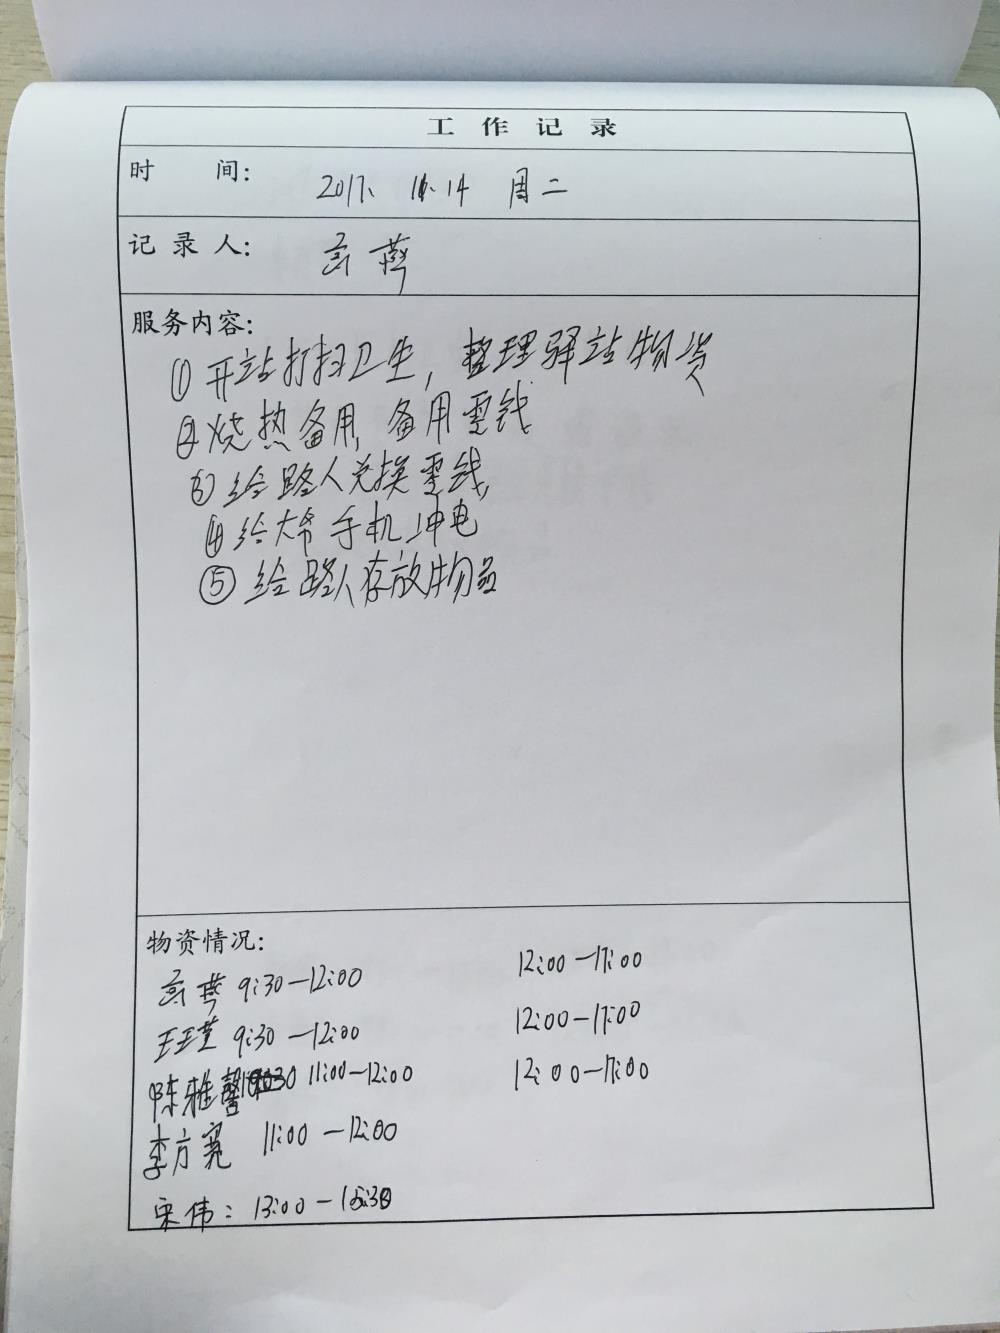 工作记录
时 间: 2017. 11.14 周二
记录人: 高燕
服务内容:
①开站打扫卫生，整理驿站物资
②烧热备用，备用零钱
③给路人兑换零钱，
④给大爷手机冲电
⑤给路人存放物品
物资情况:
高燕 9:30—12:00 12:00—17:00
王玉莹 9:30—12:00 12:00—17:00
陈雅馨 11:00—12:00 12:00—17:00
李方亮 11:00—12:00
宋伟: 13:00—